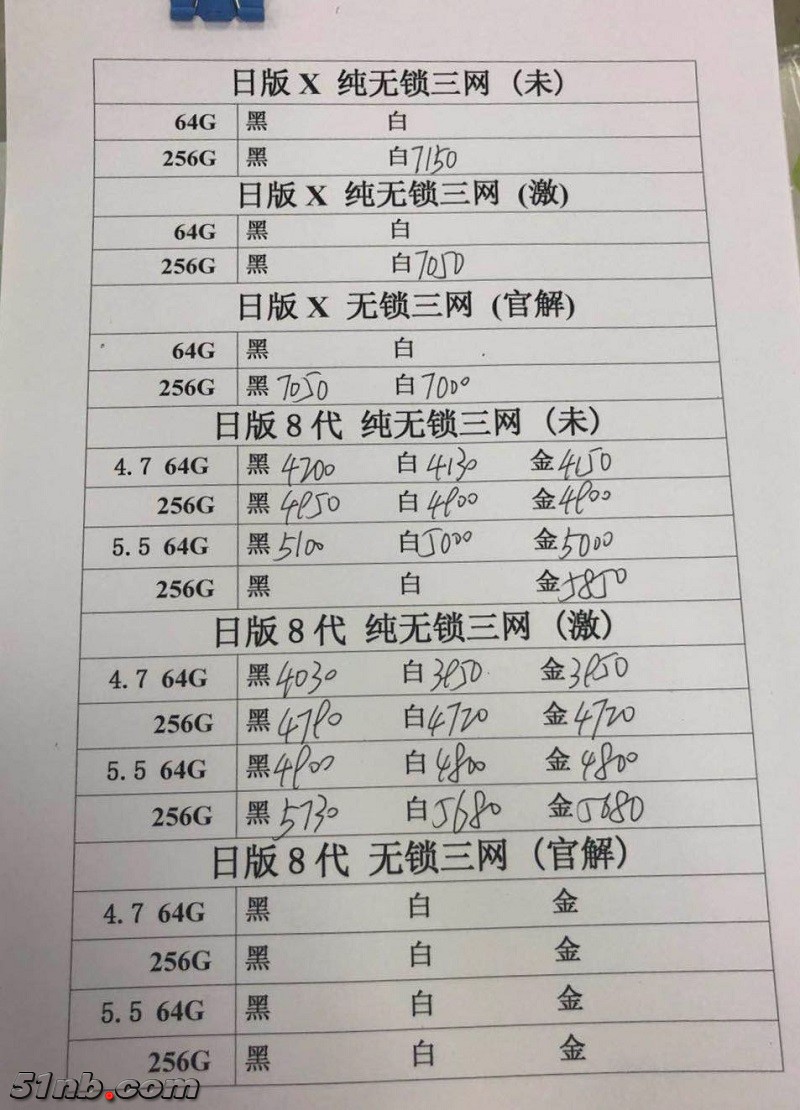 日版 X 纯无锁三网 (未)
64G 黑 白
256G 黑 白7150
日版 X 纯无锁三网 (激)
64G 黑 白
256G 黑 白7050
日版 X 无锁三网 (官解)
64G 黑 白
256G 黑7050 白7000
日版 8 代 纯无锁三网 (未)
4.7 64G 黑4200 白4130 金4150
256G 黑4950 白4900 金4900
5.5 64G 黑5100 白5000 金5000
256G 黑 白 金5850
日版 8 代 纯无锁三网 (激)
4.7 64G 黑4030 白3950 金3950
256G 黑4790 白4720 金4720
5.5 64G 黑4900 白4800 金4800
256G 黑5730 白5680 金5680
日版 8 代 无锁三网 (官解)
4.7 64G 黑 白 金
256G 黑 白 金
5.5 64G 黑 白 金
256G 黑 白 金
51nb.com